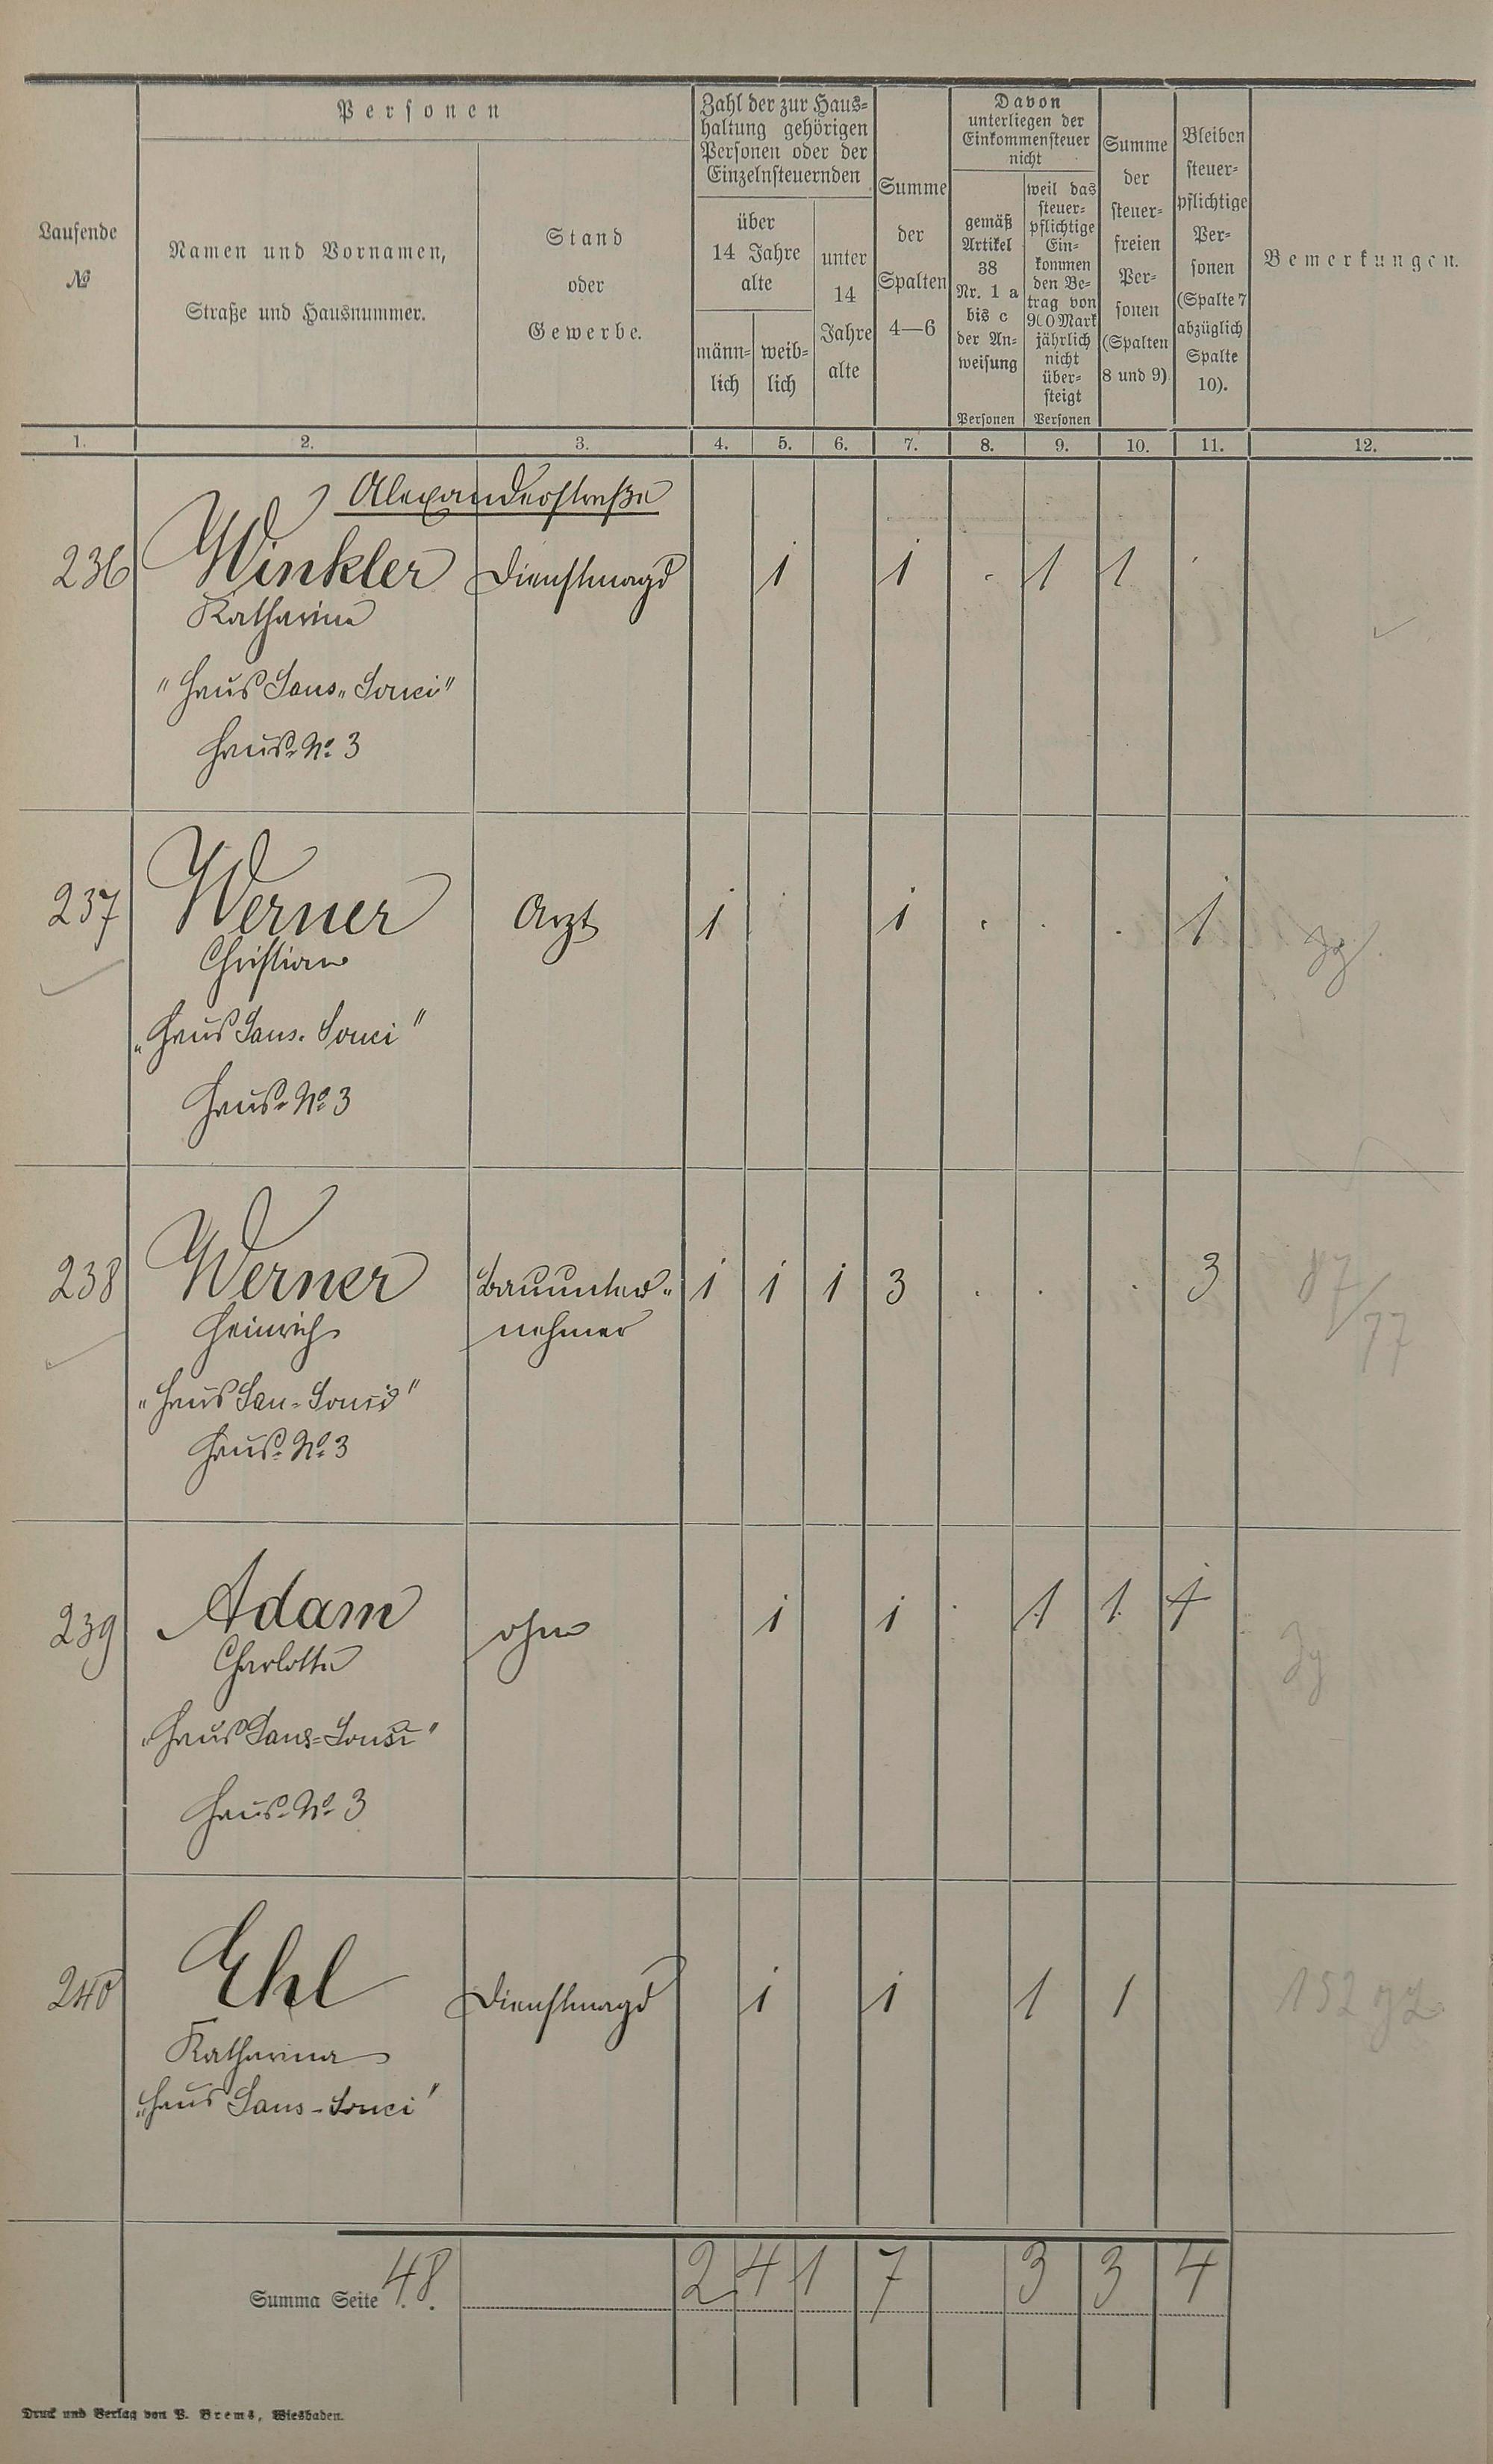 Personen
Laufende
№
Namen und Vornamen,
Straße und Hausnummer.
Stand
oder
Gewerbe.
Zahl der zur Haus-
haltung gehörigen
Personen oder der
Einzelnsteuernden
über
14 Jahre
alte
männ-
lich
weib-
lich
unter
14
Jahre
alte
Summe
der
Spalten
4—6
Davon
unterliegen der
Einkommensteuer
nicht
gemäß
Artikel
38
Nr. 1 a
bis c
der An-
weisung
Personen
weil das
steuer-
pflichtige
Ein-
kommen
den Be-
trag von
900 Mark
jährlich
nicht
über-
steigt
Personen
Summe
der
steuer-
freien
Per-
sonen
(Spalten
8 und 9)
Bleiben
steuer-
pflichtige
Per-
sonen
(Spalte 7
abzüglich
Spalte
10).
Bemerkungen.
1. 2. 3. 4. 5. 6. 7. 8. 9. 10. 11. 12.
Alexanderstraße
236 Winkler Dienstmagd 1 1 - 1 1
Katharina
"Haus Sans-Souci"
Haus-No 3
237 Werner Arzt 1 1 . . . 1
Christian
"Haus Sans-Souci"
Haus-No 3
238 Werner Bauunter- 1 1 1 3 . . . 3 87/77
Heinrich nehmer
"Haus San-Souci"
Haus-No 3
239 Adam ohne 1 1 . 1 1 1
Charlotte
"Haus Sans-Souci"
Haus-No 3
240 Ehl Dienstmagd 1 1 1 1 152
Katharina
"Haus Sans-Souci"
Summa Seite 48. 2 4 1 7 3 3 4
Druck und Verlag von P. Brems, Wiesbaden.